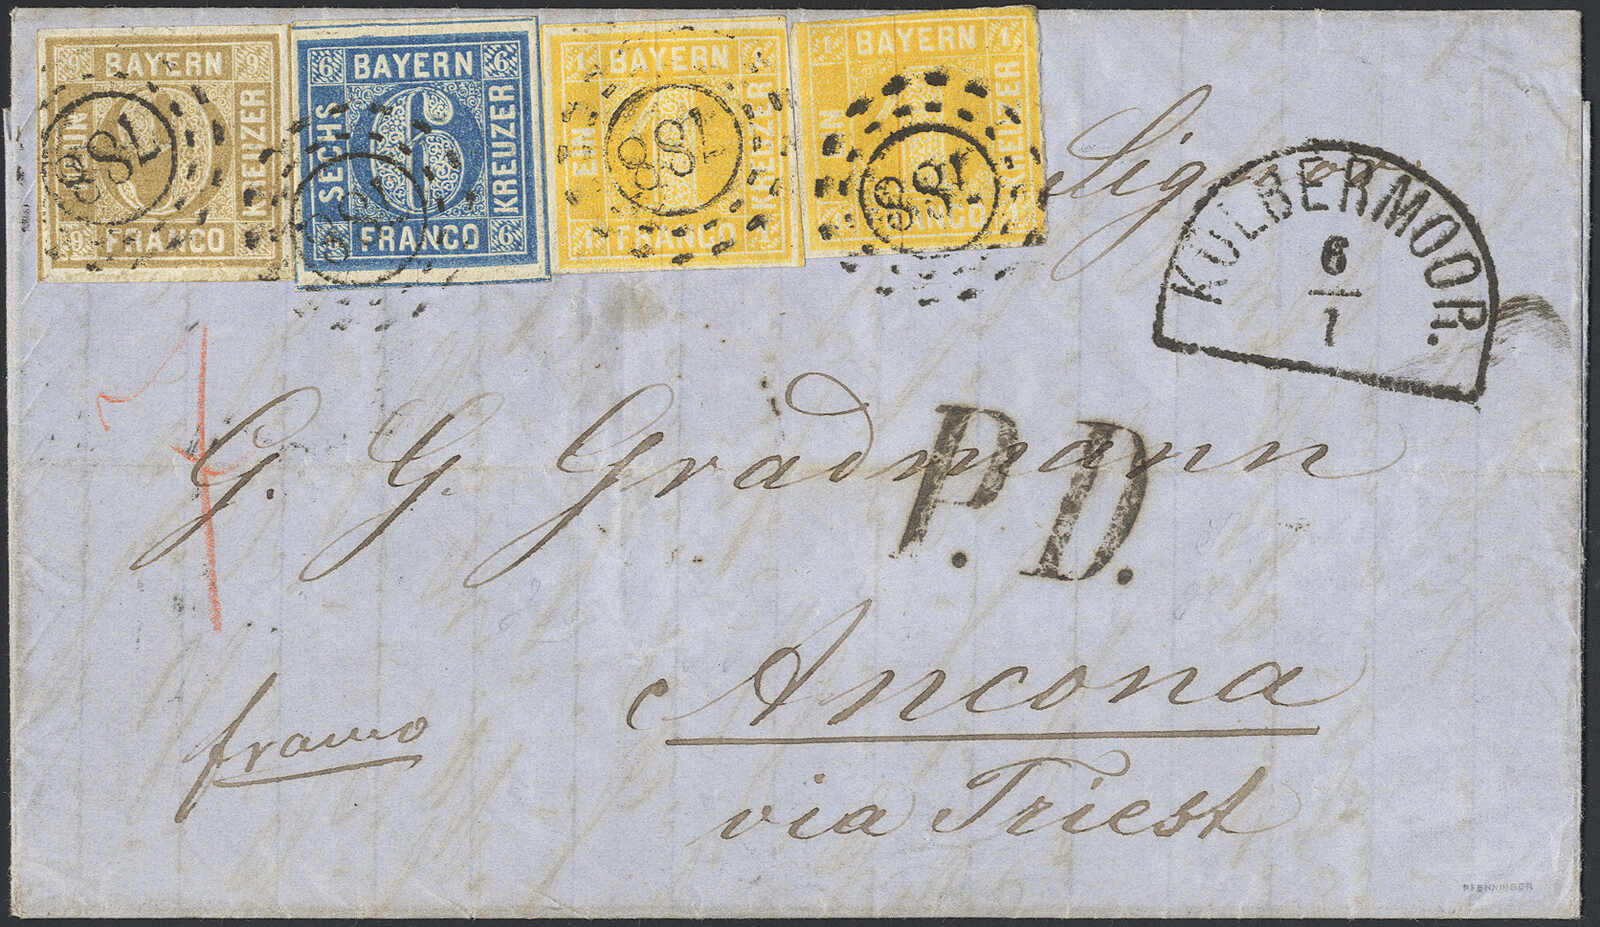 9 BAYERN 9
NEUN
KREUZER
9 FRANCO
788
6 BAYERN 6
SECHS
KREUZER
6
FRANCO 6
788
1 BAYERN 1
EIN
1
KREUZER
1 FRANCO 1
788
1 BAYERN 1
EIN
1
KREUZER
FRANCO 1
788
KOLBERMOOR.
6
1
P.D.
G. G. Gradmann
Ancona
franco
via Triest
PFENNINGER